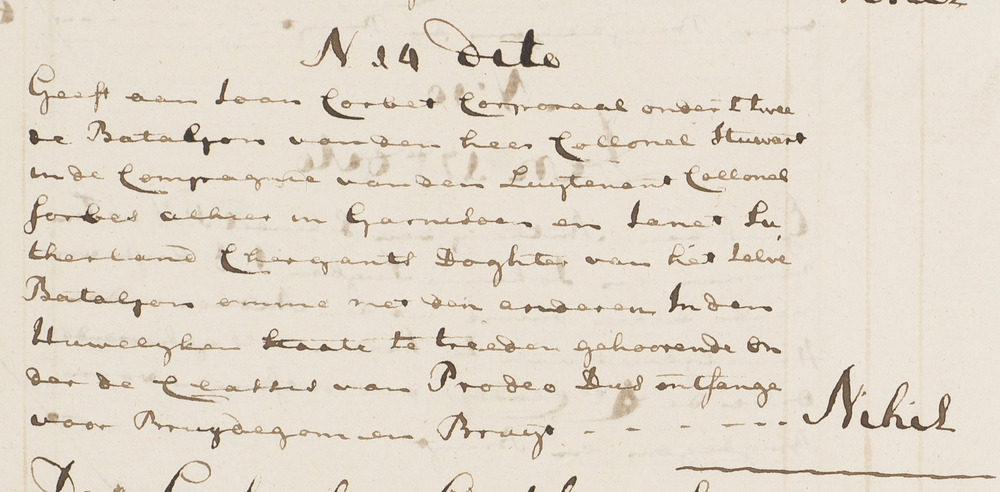 N 14 dito
Geeft aan Joan Corbet Corporaal onder t twee
de Bataljon vanden heer Collonel Stuwart
in de Compagnie van den Luijtenant Collonel
forbes alhier in Garnisoen en Janet Su
therland Chergants Doghter van het selve
Bataljon omme met den anderen In den
Huwelijken staate te treeden gehoorende on
der de Classis van Prodeo Dus ontfange
voor Bruijdegom en Bruijt - - - - - - Nihil